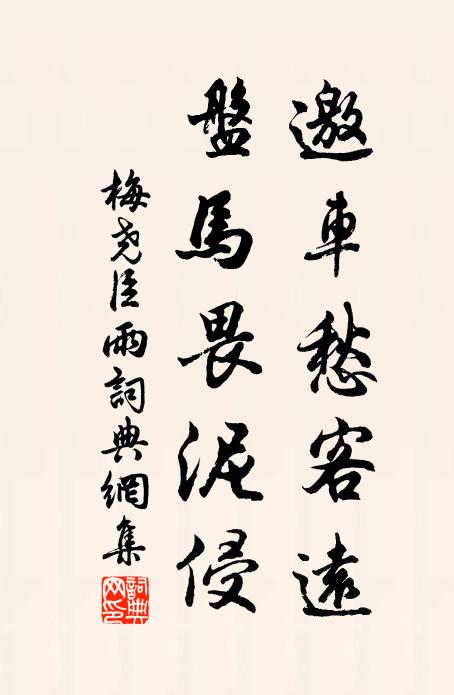 邀車愁客遠
盤馬畏泥侵
梅尧臣雨詞典網集
詞典網印